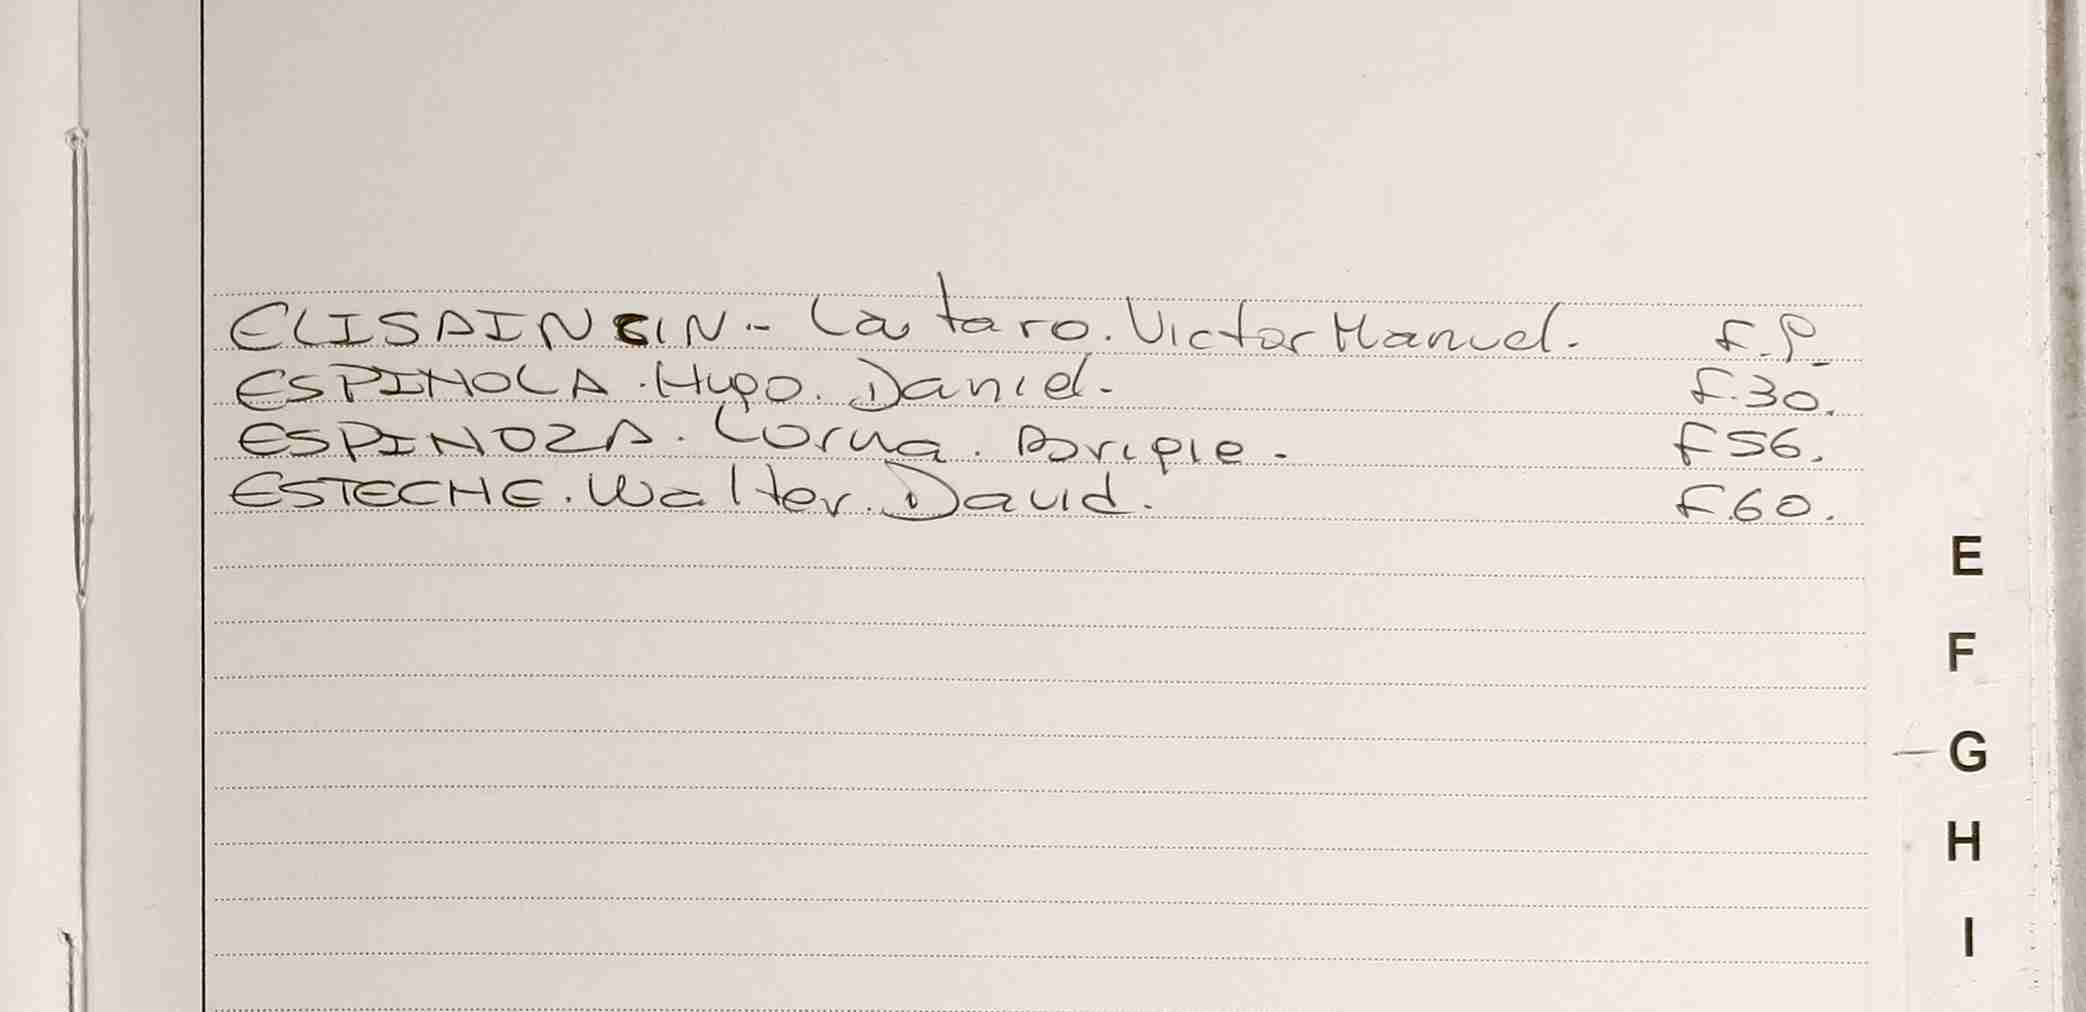 ELISAINCIN - Lautaro. Victor Manuel. F.9.
ESPINOLA. Hugo. Daniel. - F.30.
ESPINOZA. Lorna. F56.
ESTECHE. Walter. David. F.60.
E
F
G
H
I